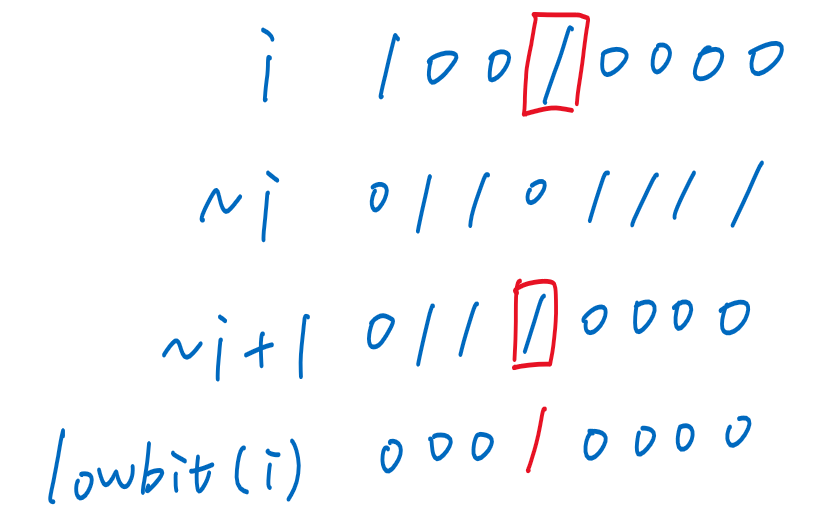 i 1 0 0 1 0 0 0 0
~i 0 1 1 0 1 1 1 1
~i+1 0 1 1 1 0 0 0 0
lowbit(i) 0 0 0 1 0 0 0 0